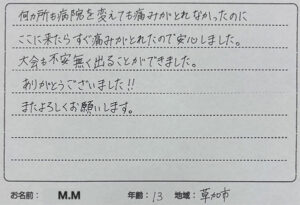 何か所も病院を変えても痛みがとれなかったのに
ここに来たらすぐ痛みがとれたので安心しました。
大会も不安無く出ることができました。
ありがとうございました!!
またよろしくお願いします。
お名前: M.M 年齢: 13 地域: 草加市